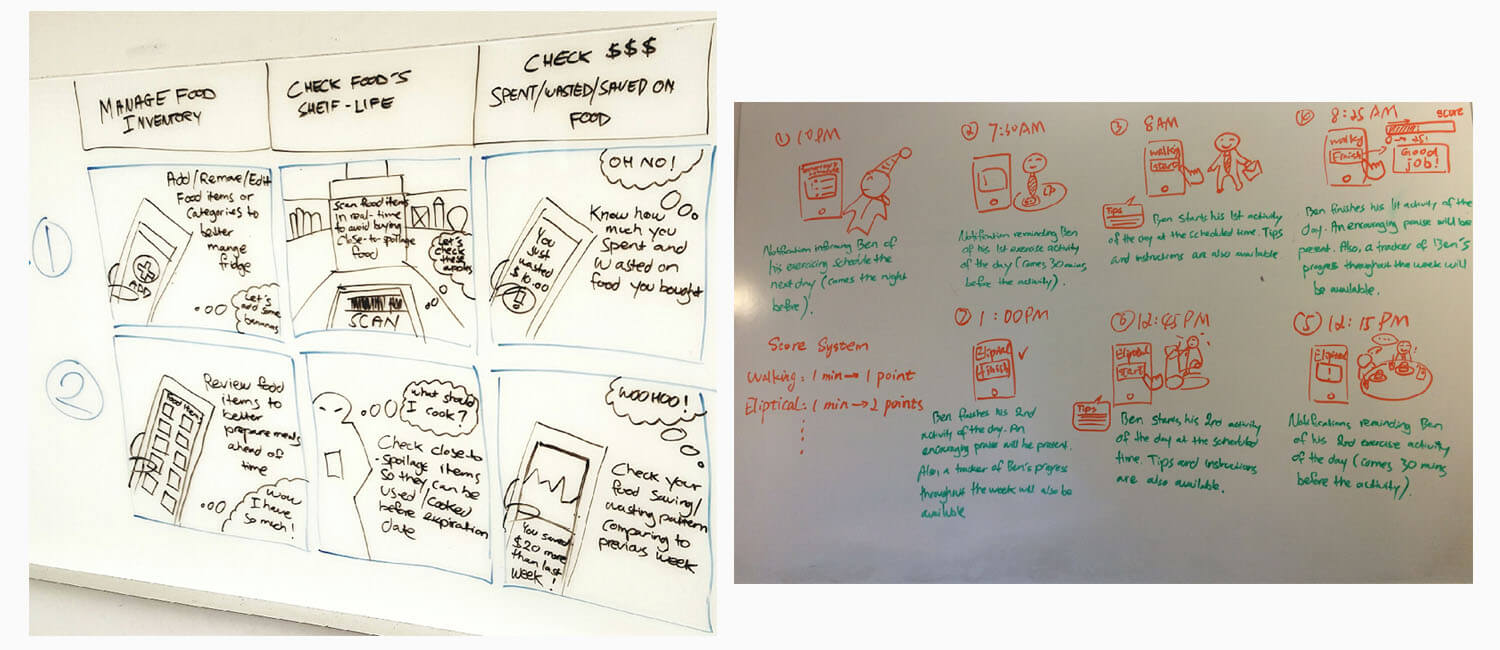 MANAGE FOOD
INVENTORY
CHECK FOOD'S
SHELF-LIFE
CHECK $$$
SPENT/WASTED/SAVED ON
FOOD
1
Add/Remove/Edit
Food items or
categories to
better
mange
fridge
ADD
Let's
add some
bananas
Scan food items
in real-time
to avoid buying
close-to-spoilage
food
Let's
check
these
apples
SCAN
OH NO!
Know how
much you
spent and
wasted on
food you bought
You
just
wasted
$10.00
!
2
Review food
items to
better
prepare meals
ahead of
time
Food items
Wow
I have
so much!
What should
I cook?
Check close-to
-spoilage items
so they can be
used/cooked
before expiration
date
WOOHOO!
Check your
food saving/
wasting pattern
comparing to
previous week
You saved
$20 more
than last
week!
① 10PM
Notification informing Ben of
his exercising schedule the
next day (comes the night
before).
② 7:30AM
!
Notification reminding Ben
of his 1st exercise activity
of the day (comes 30 mins
before the activity).
③ 8AM
walkg
start
Tips
Ben starts his 1st activity
of the day at the scheduled time. Tips
and instructions are also available
8:25 AM
score
walkg
finish
0 → 25!
Good
job!
Ben finishes his 1st activity of the
day. An encouraging praise will be
present. Also, a tracker of Ben's
progress throughout the week will
be available.
Score System
Walking: 1 min → 1 point
Eliptical: 1 min → 2 points
⑦ 1:00PM
Eliptical
finish
Ben finishes his 2nd
activity of the day. An
encouraging praise will be present.
Also, a tracker of Ben's progress
throughout the week will also be
available
⑥ 12:45PM
Eliptical
start
Tips
Ben starts his 2nd activity
of the day at the scheduled
time. Tips and instructions
are also available.
⑤ 12:15 PM
Eliptical
!
Notifications reminding Ben
of his 2nd exercise activity
of the day (comes 30 mins
before the activity).